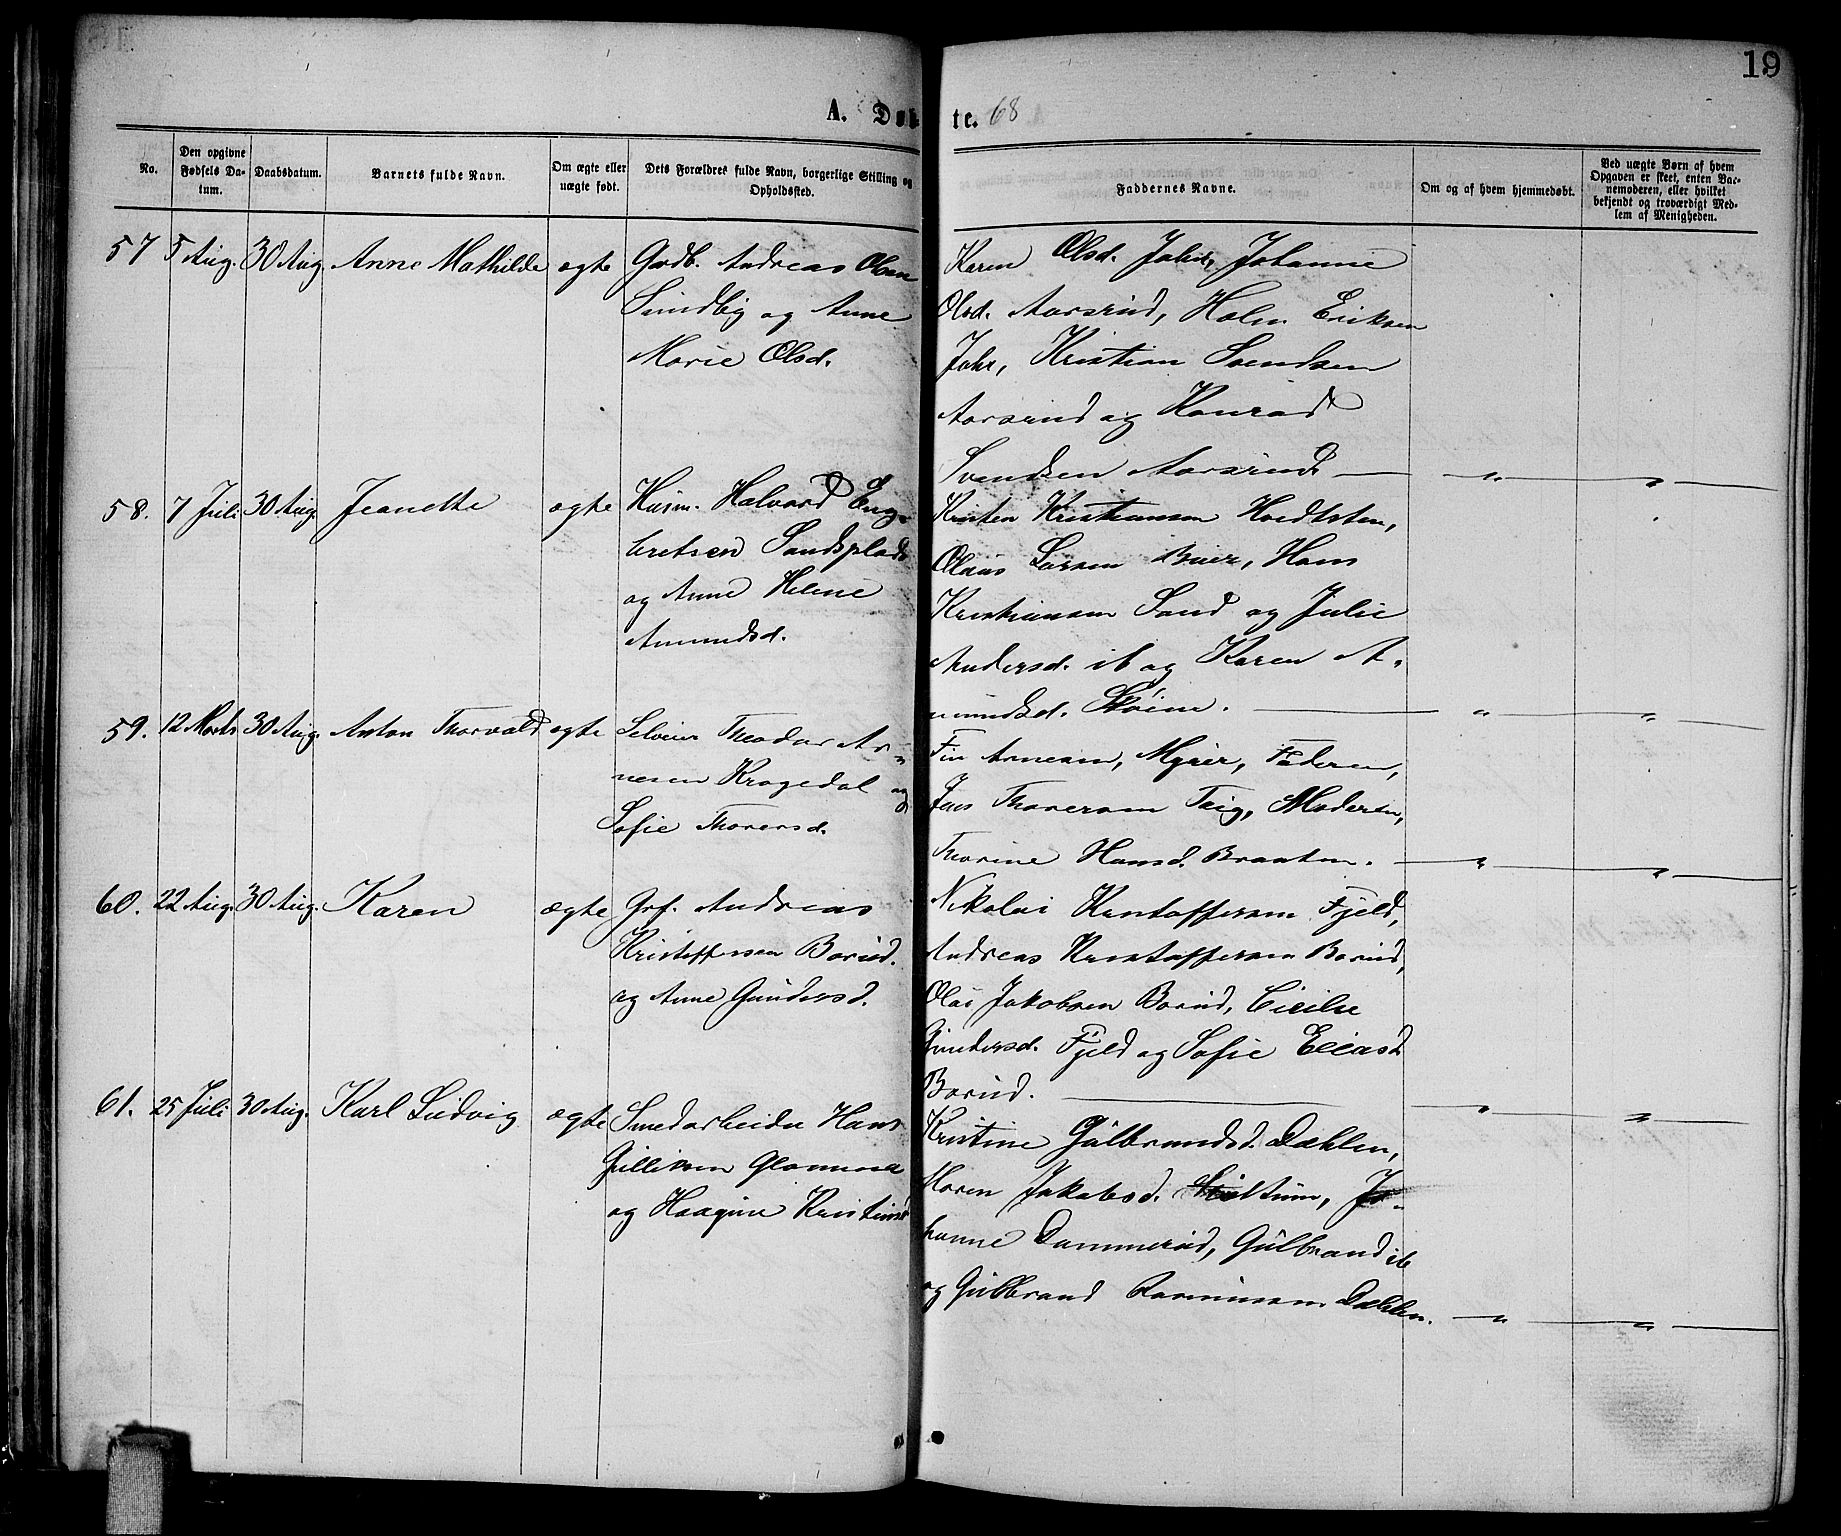 19
A. Døbte. 68
No.
Den opgivne Fødsels Datum.
Daabsdatum.
Barnets fulde Navn.
Om ægte eller uægte født.
Dets Forældres fulde Navn, borgerlige Stilling og Opholdsted.
Faddernes Navne.
Om og af hvem hjemmedøbt.
Ved uægte Børn af hvem Opgaven er skeet, enten Barnemoderen, eller hvilket bekjendt og troværdigt Medlem af Menigheden.
57 5 Aug. 30 Aug Anne Mathilde ægte Grdb. Andreas Olsen
Sundby og Anne
Marie Olsd.
Karen Olsd. Johanne
Olsd. Aarsrud, Holm Eriksen
Kristian Svendsen
Aarsrud og Konrad
Svendsen Aarsrud — " "
58. 7 Juli 30 Aug. Jeanette ægte Husm. Halvard Eng-
bretsen Sandsplads
og Anne Helene
Amundsd.
Kristen Kristiansen
Olaus Larsen Hans
Kristiansen Sand og Julie
Andersd. ib og Karen A-
mundsd. Støien. — " "
59. 12 Marts 30 Aug. Anton Thorvald ægte Selveier Theodor Ar-
nesen Kragedal og
Sofie Thorersd.
Fin Arnesen, Myrer, Faderen,
Jens Thoresen Teig, Moderen,
Thorine Hansd. Braaten. — " "
60. 22 Aug. 30 Aug. Karen ægte Grf. Andreas
Kristoffersen Borud.
og Anne Gundersd.
Nikolai Kristoffersen Fjeld,
Andreas Kristoffersen Borud,
Olai Jakobsen Borud, Cicilie
Gundersd. Fjeld og Sofie Eliasd
Borud. — " "
61. 25 Juli 30 Aug. Karl Ludvig ægte Smedarbeider Hans
Gulliksen Glommen
og Haagine Kristiansd
Kristine Gulbrandsd. Dæhlen,
Maren Jakobsd. Jo-
hanne Dammerud, Gulbrand ib
og Gulbrand Rasmussen Dæhlen. — " "